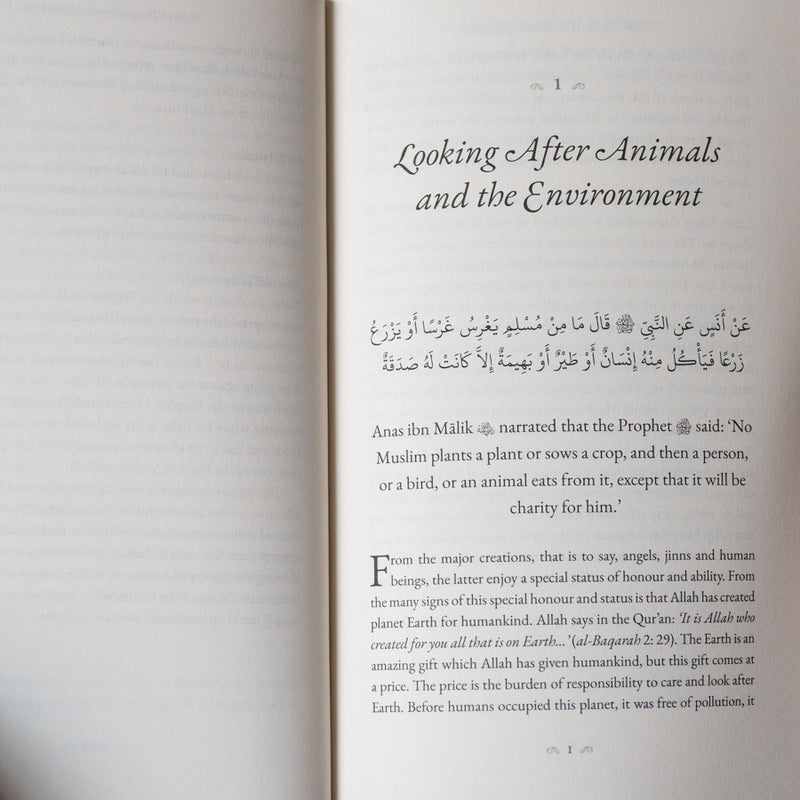 1
Looking After Animals
and the Environment
عَنْ أَنَسٍ عَنِ النَّبِيِّ ﷺ قَالَ مَا مِنْ مُسْلِمٍ يَغْرِسُ غَرْسًا أَوْ يَزْرَعُ
زَرْعًا فَيَأْكُلُ مِنْهُ إِنْسَانٌ أَوْ طَيْرٌ أَوْ بَهِيمَةٌ إِلاَّ كَانَتْ لَهُ صَدَقَةٌ
Anas ibn Mālik narrated that the Prophet ﷺ said: ‘No
Muslim plants a plant or sows a crop, and then a person,
or a bird, or an animal eats from it, except that it will be
charity for him.’
From the major creations, that is to say, angels, jinns and human
beings, the latter enjoy a special status of honour and ability. From
the many signs of this special honour and status is that Allah has created
planet Earth for humankind. Allah says in the Qur’an: ‘It is Allah who
created for you all that is on Earth...’ (al-Baqarah 2: 29). The Earth is an
amazing gift which Allah has given humankind, but this gift comes at
a price. The price is the burden of responsibility to care and look after
Earth. Before humans occupied this planet, it was free of pollution, it
1